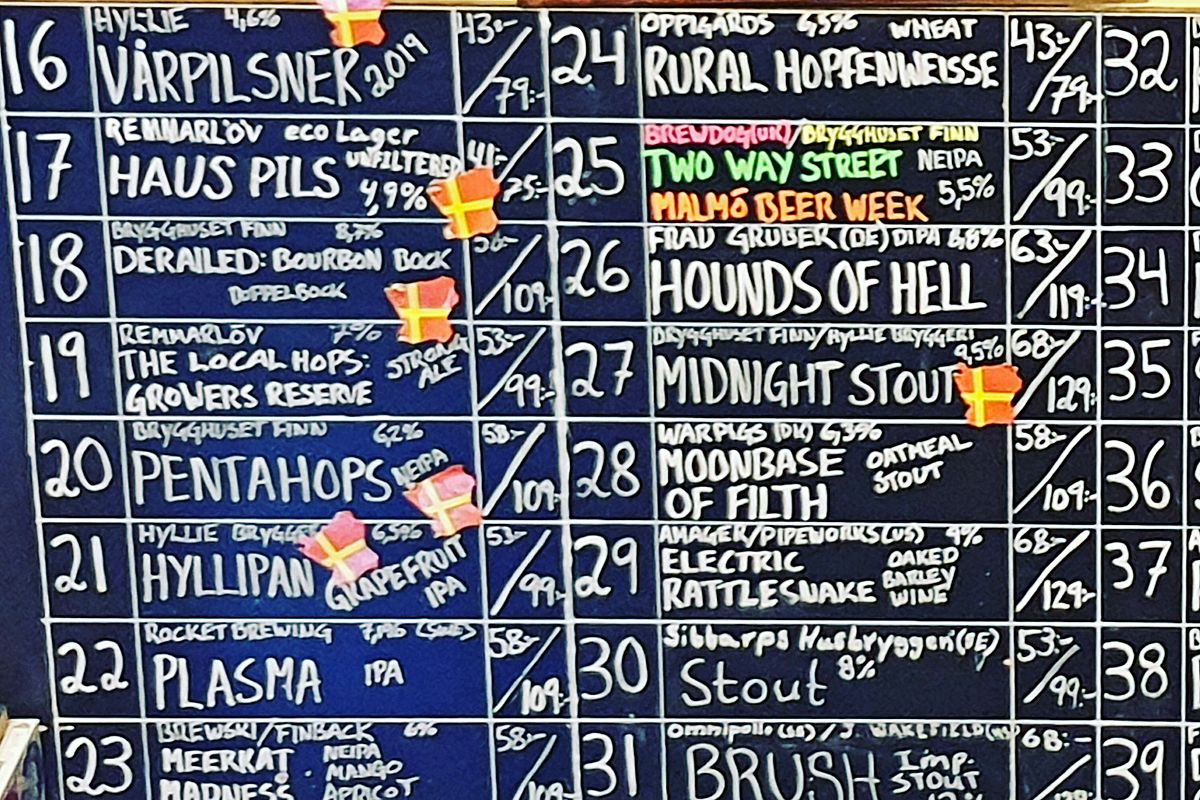 16
HYLLIE 4,6%
VÅRPILSNER 2019
43:-/79:-
17
REMMARLÖV eco Lager
HAUS PILS UNFILTERED
4,9%
41:-/75:-
18
BRYGGHUSET FINN 8,7%
DERAILED: BOURBON BOCK
DOPPELBOCK
/109:-
19
REMMARLÖV 7%
THE LOCAL HOPS:
GROWERS RESERVE
STRONG
ALE
53:-/99:-
20
BRYGGHUSET FINN 6,2%
PENTAHOPS NEIPA
58:-/109:-
21
HYLLIE 6,5%
HYLLIPAN GRAPEFRUIT
IPA
53:-/99:-
22
ROCKET BREWING 7,1% (SWE)
PLASMA IPA
58:-/109:-
23
BREWSKI/FINBACK 6%
MEERKAT
MADNESS
NEIPA
MANGO
APRICOT
58:-/109
24
OPPIGÅRDS 6,5% WHEAT
RURAL HOPFENWEISSE
43:-/79:-
25
BREWDOG(UK)/BRYGGHUSET FINN
TWO WAY STREET NEIPA
5,5%
MALMÖ BEER WEEK
53:-/99:-
26
FRAU GRUBER (DE) DIPA 8,8%
HOUNDS OF HELL
63:-/119:-
27
BRYGGHUSET FINN/HYLLIE BRYGGERI
9,5%
MIDNIGHT STOUT
68:-/129:-
28
WARPIGS (DK) 6,3%
MOONBASE
OF FILTH
OATMEAL
STOUT
58:-/109:-
29
AMAGER/PIPEWORKS(US) 9%
ELECTRIC
RATTLESNAKE
OAKED
BARLEY
WINE
68:-/129:-
30
Sibbarps Husbryggeri (SE)
Stout 8%
53:-/99:-
31
Omnipollo (SE) / J. WAKEFIELD
BRUSH Imp.
STOUT
68:-
32
33
34
35
36
37
38
39